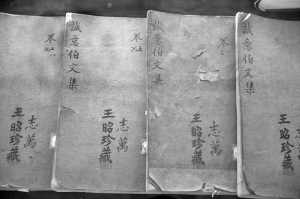 誠意伯文集
王昭珍藏
卷
誠意伯文集
志萬
王昭珍藏
卷
誠意伯文集
志萬
王昭珍藏
卷
志萬
王昭珍藏